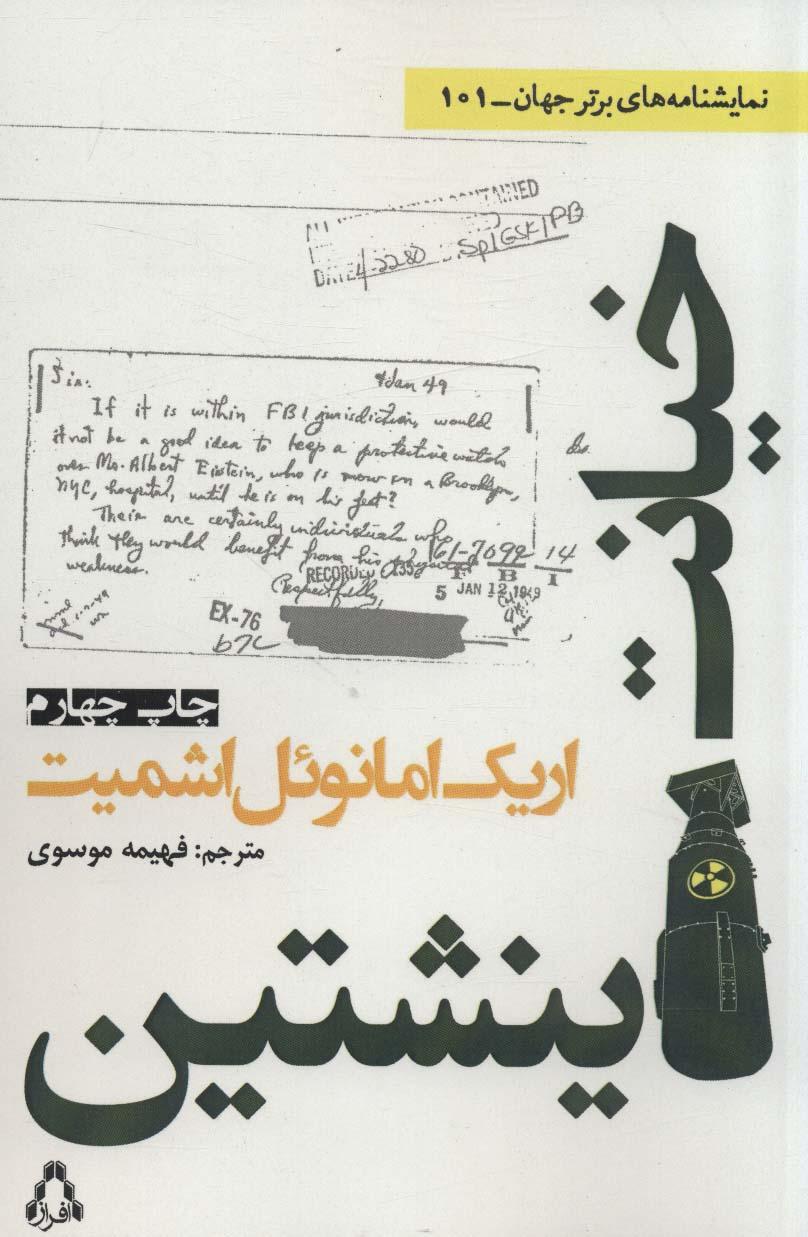 نمایشنامه‌های برتر جهان_۱۰۱
خیانت
CONTAINED
DATE 4-22-80 Sp1GSK/PB
Sir:
4 Jan 49
If it is within FBI jurisdiction, would
it not be a good idea to keep a protective watch
over Mr. Albert Eistein, who is now in a Brooklyn,
NYC, hospital, until he is on his feet?
Their are certainly individuals who
think they would benefit from his
weakness.
61-7099 14
RECORDED 135 F B I
5 JAN 12 1949
Respectfully,
EX-76
b7C
چاپ چهارم
اریک امانوئل اشمیت
مترجم: فهیمه موسوی
اینشتین
افراز